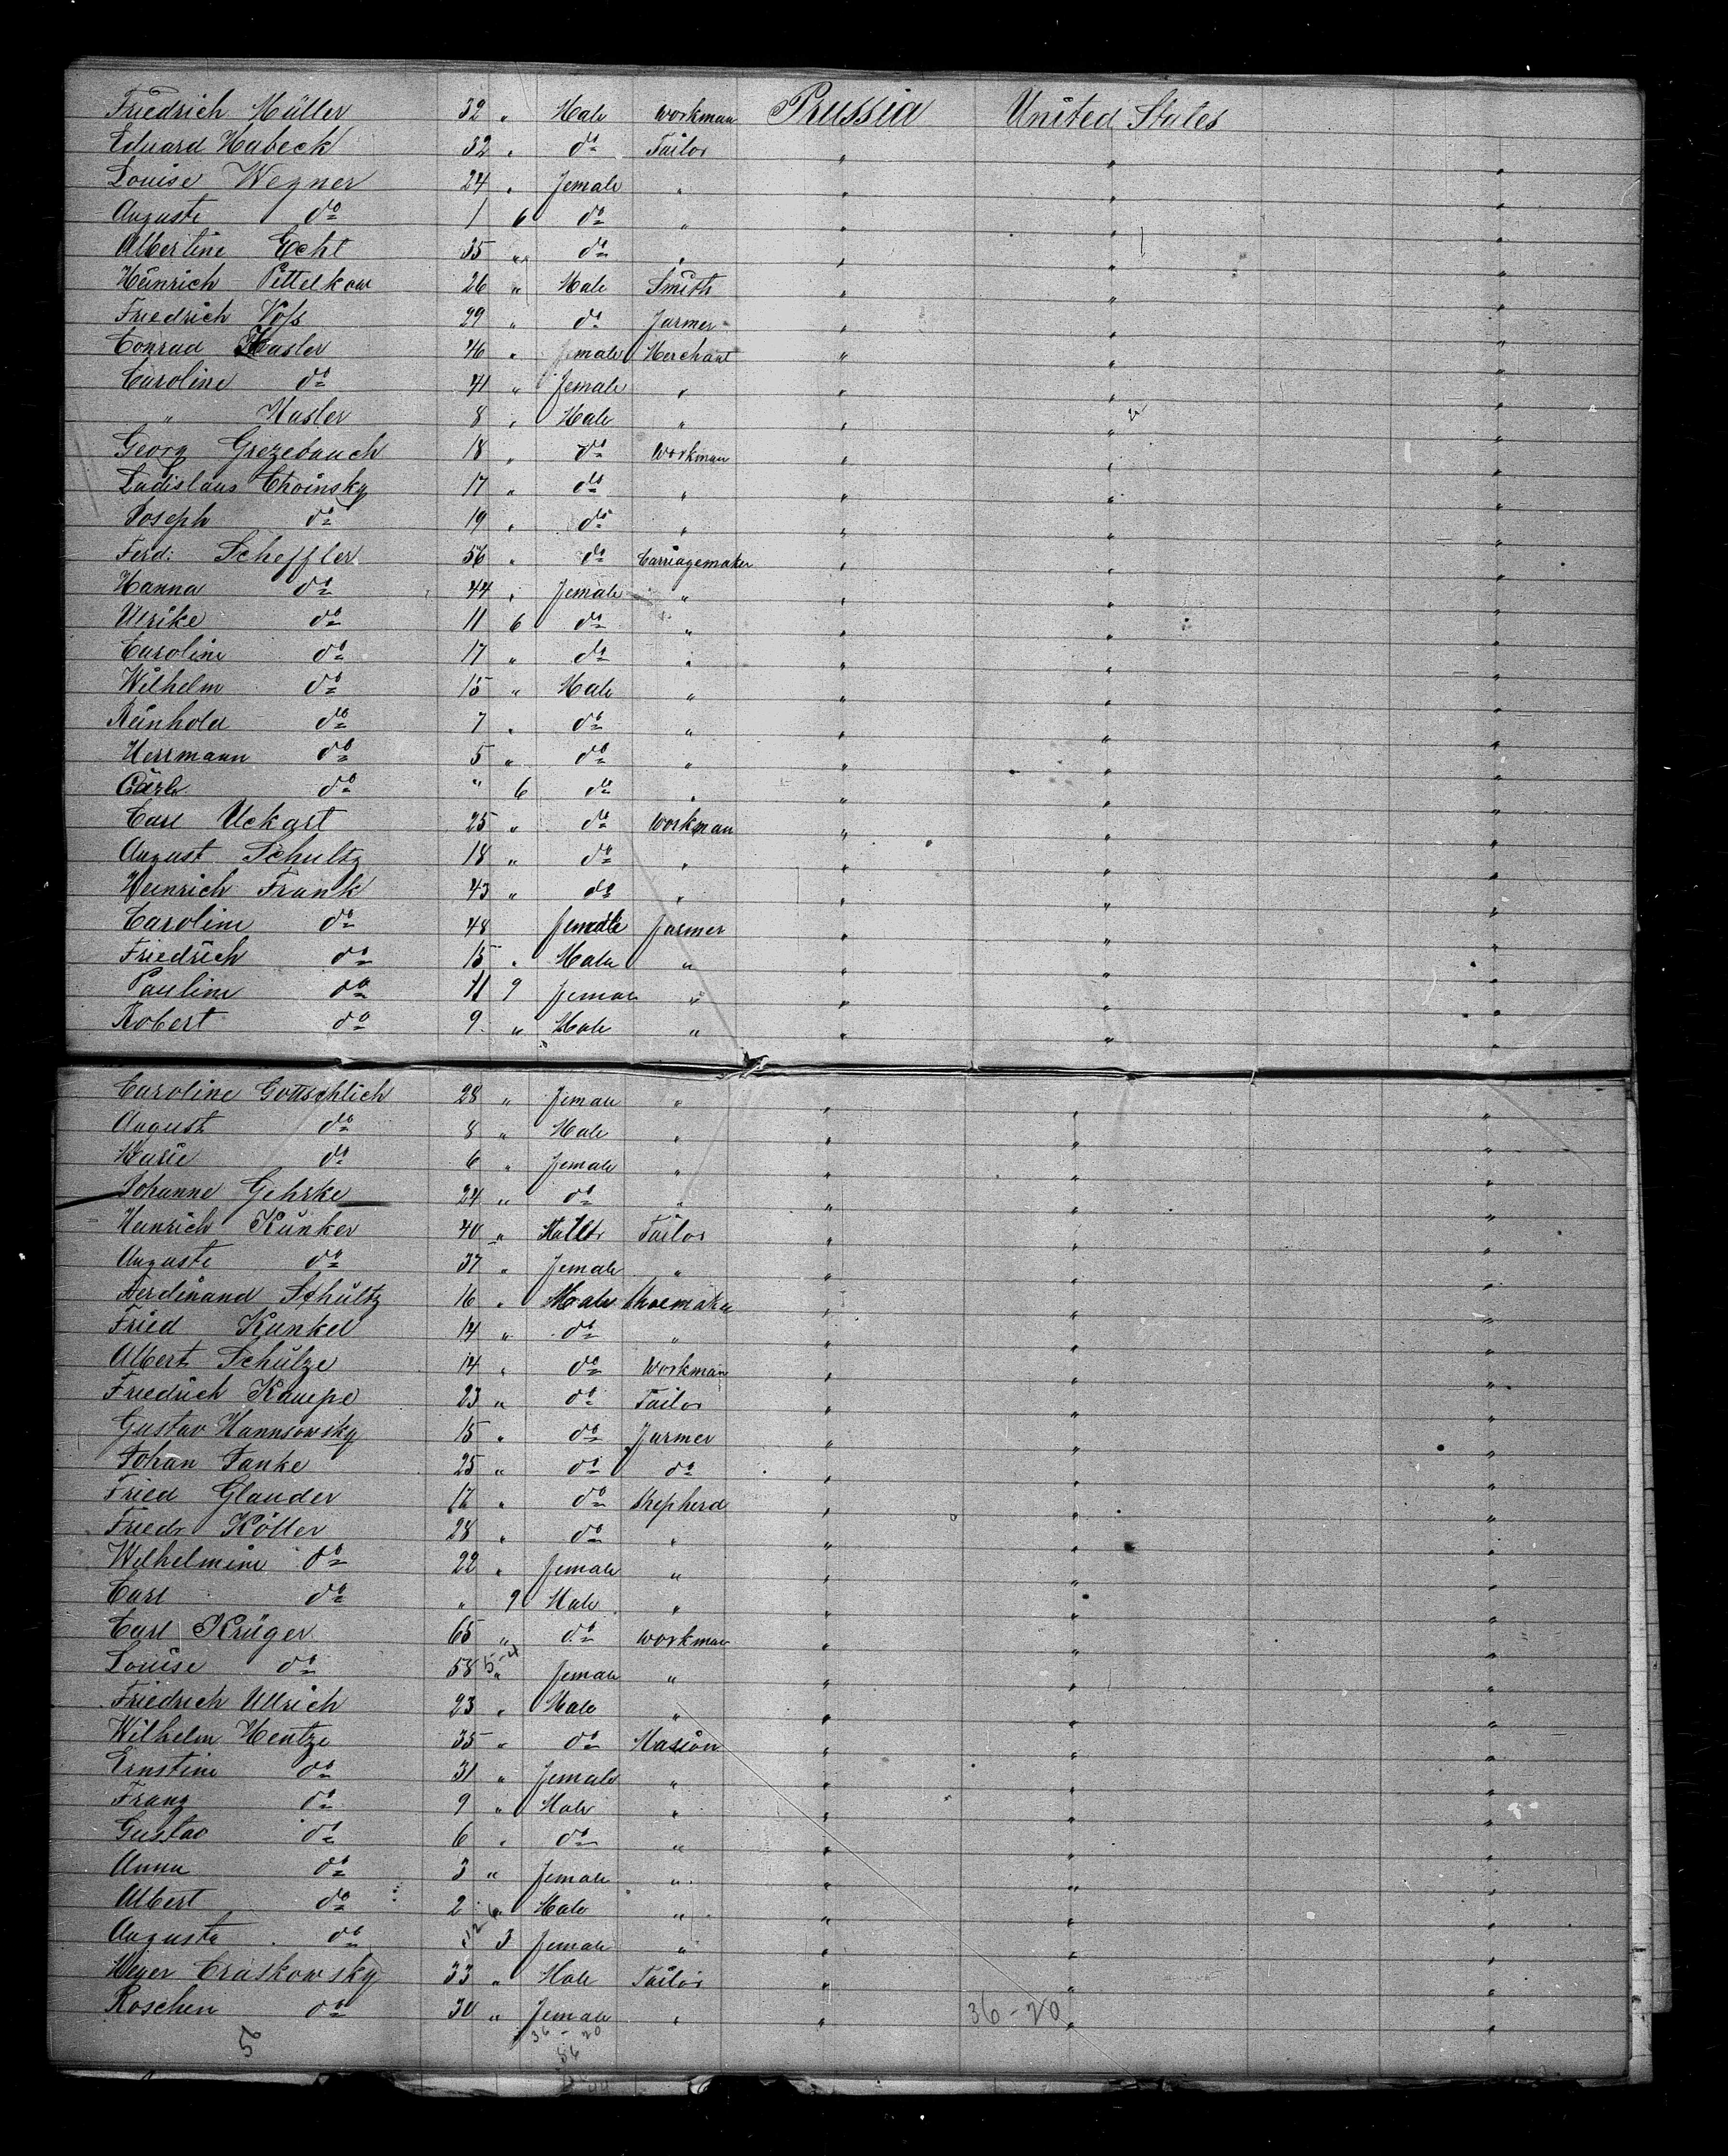 Friedrich Müller 32 " Male workman Prussia United States
Eduard Habeck 32 " do Tailor " " "
Louise Wegner 24 " female " " " "
Auguste do 1 6 do " " " "
Albertine Echt 35 " do " " " "
Heinrich Pittelkow 26 " Male Smith " " "
Friedrich Voſs 29 " do farmer " " "
Conrad Hasler 46 " female Merchant " " "
Caroline do 41 " female " " " "
" Hasler 8 " Male " " " "
Georg Grezebauch 18 " do Workman " " "
Ladislaus Choinsky 17 " do " " " "
Joseph do 19 " do " " " "
Ferd: Scheffler 56 " do Carriagemaker " " "
Hanna do 44 " female " " " "
Ulrike do 11 6 do " " " "
Caroline do 17 " do " " " "
Wilhelm do 15 " Male " " " "
Reinhold do 7 " do " " " "
Herrmann do 5 " do " " " "
Carl do " 6 do " " " "
Carl Uckart 25 " do workman " " "
August Schultz 18 " do " " " "
Heinrich Frank 43 " do " " " "
Caroline do 48 female farmer " " "
Friedrich do 15 " Male " " " "
Pauline do 11 9 female " " " "
Robert do 9 " Male " " " "
Caroline Gottschlich 28 " female " " " "
August do 8 " Male " " " "
Marie do 6 " female " " " "
Johanne Gehrke 24 " do " " " "
Heinrich Künker 40 " Tailor " " "
Auguste do 37 " female " " " "
Ferdinand Schültz 16 " Male Shoemaker " " "
Fried Kunkel 14 " do " " " "
Albert Schülze 14 " do Workman " " "
Friedrich Kampe 23 " do Tailor " " "
Gustav Hannsowsky 15 " do farmer " " "
Johan Janke 25 " do do " " "
Fried Glander 17 " do Shepherd " " "
Friedr Kötter 28 " do " " " "
Wilhelmine do 22 " female " " " "
Carl do " 9 Male " " " "
Carl Krüger 65 " do workman " " "
Louise do 58 " female " " " "
Friedrich Ullrich 23 " Male " " " "
Wilhelm Hentze 35 " do Masion " " "
Ernstine do 31 " female " " " "
Franz do 9 " Male " " " "
Gustav do 6 " do " " " "
Anna do 3 " female " " " "
Albert do 2 " Male " " " "
Auguste do 3 female " " " "
Meyer Craskowsky 33 " Male Tailor " " "
Roschen do 30 " female " " 36-20 " "
5 36-20
56